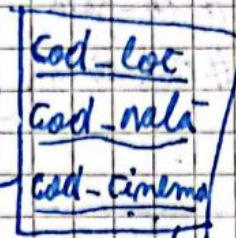 cod_loc
cod_sală
cod_cinema